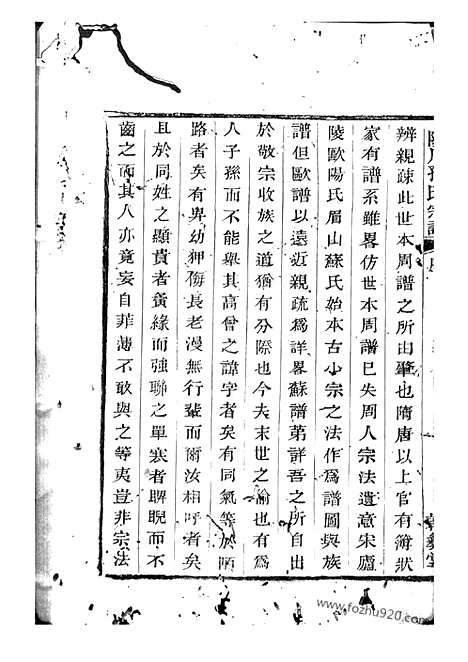 辨親疎此世本周譜之所由肇也隋唐以上官有簿狀
家有譜系雖畧仿世本周譜已失周人宗法遺意宋廬
陵歐陽氏眉山蘇氏始本古小宗之法作爲譜圖與族
譜但歐譜以遠近親疏爲詳畧蘇譜第詳吾之所自出
於敬宗收族之道猶有分際也今夫末世之喻也有爲
人子孫而不能舉其高曾之諱字者矣有同氣等於陌
路者矣有畀幼狎侮長老漫無行輩而爾汝相呼者矣
且於同姓之顯貴者夤緣而強聯之單寒者睥睨而不
齒之而其人亦竟妄自菲薄不敢與之等夷豈非宗法
www.fozhu920.com